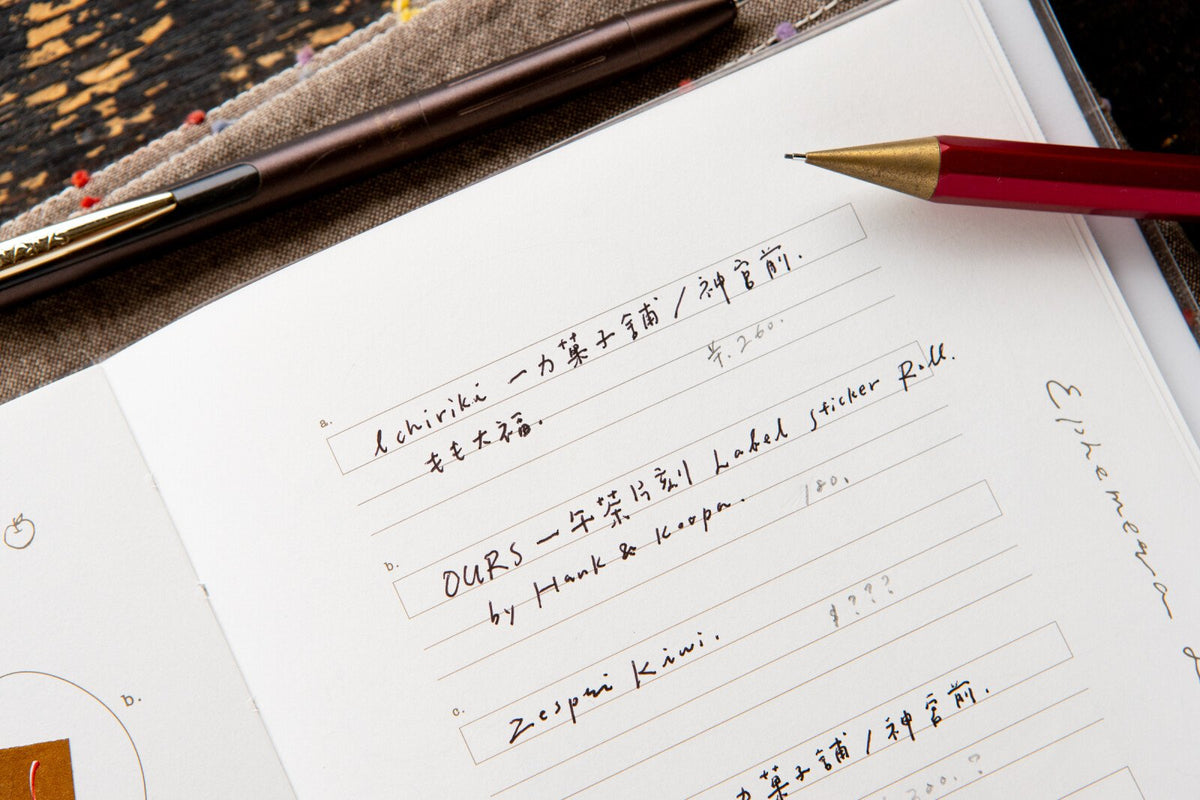 a.
Ichiriki 一力菓子舖/神宮前.
もも大福.
羊.260.
b.
OURS 一午茶片刻 Label Sticker Roll.
by Hank & Koopa.
180.
c.
Zespri Kiwi.
$???
力菓子舖/神宮前.
200.?
Ephemera
b.